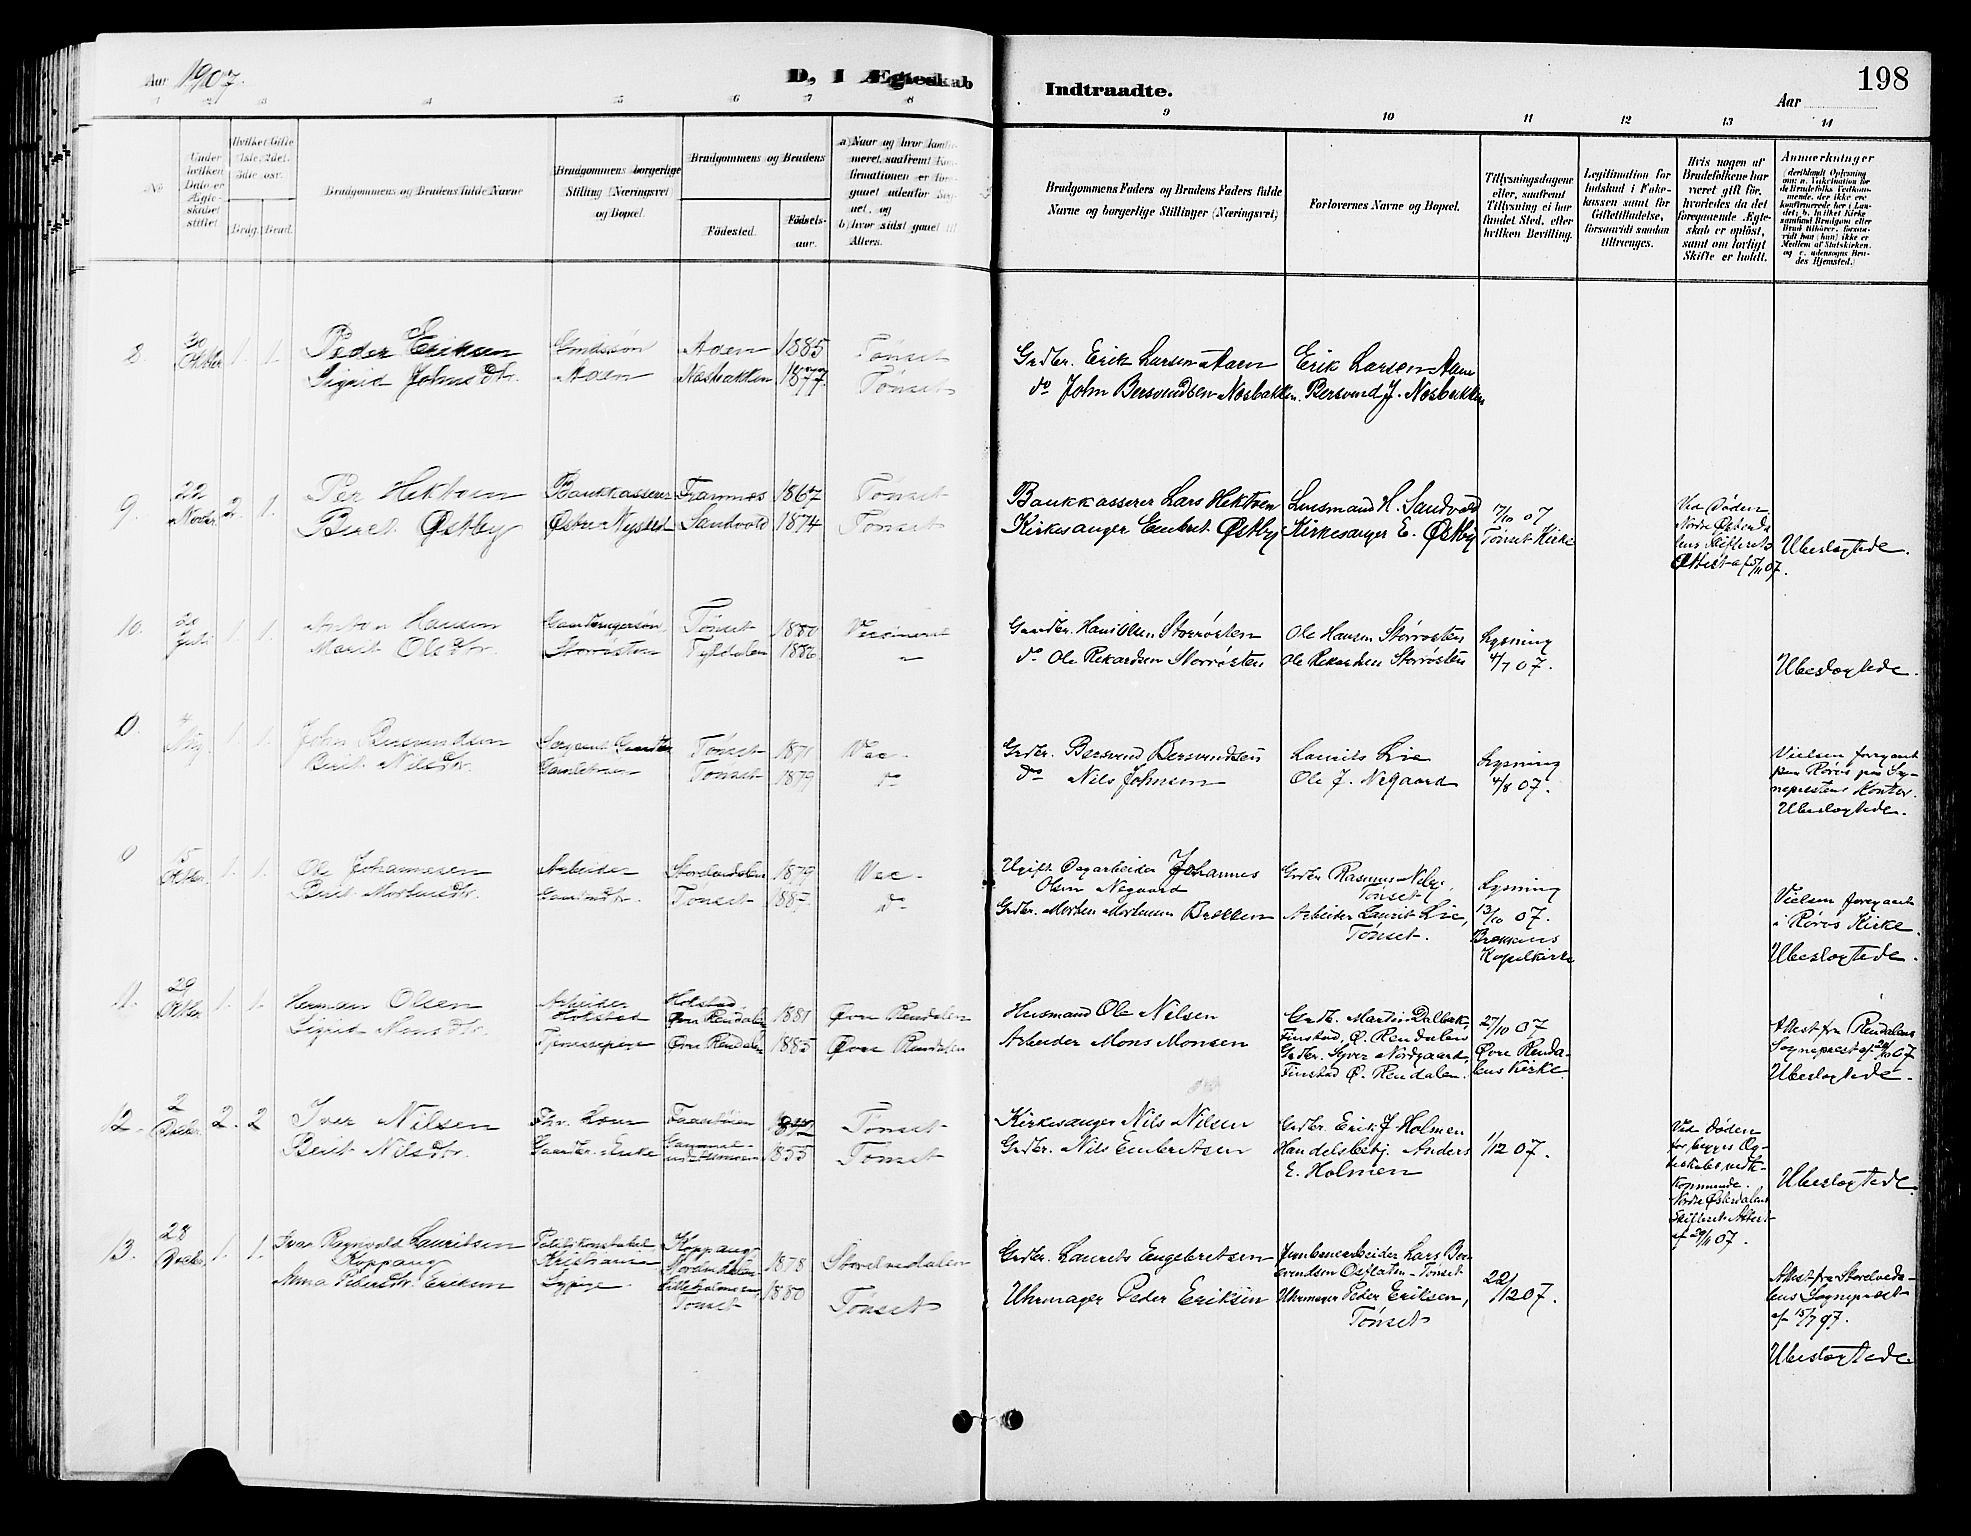 Aar 1907.
D, I Ægteskab
Indtraadte.
Aar
198
1 2 3 4 5 6 7 8 9 10 11 12 13 14
No.
Under hvilken Dato er Ægteskabet stiftet
Hvilket Gifte 1ste, 2det, 3die osv.
Brdg. Brud.
Brudgommens og Brudens fulde Navne
Brudgommens borgerlige Stilling (Næringsvei) og Bopæl.
Brudgommens og Brudens
Fødested.
Fødselsaar.
a) Naar og hvor konfirmeret, saafremt Konfirmationen er foregaaet udenfor Sognet, og
b) hvor sidst gaaet til Alters.
Brudgommens Faders og Brudens Faders fulde
Navne og borgerlige Stillinger (Næringsvei)
Forlovernes Navne og Bopæl.
Tillysningsdagene eller, saafremt Tillysning ei har fundet Sted, efter hvilken Bevilling.
Legitimation for Indskud i Enkekassen samt for Giftetilladelse, forsaavidt saadan tiltrænges.
Hvis nogen af Brudefolkene har været gift før, hvorledes da det foregaaende Ægteskab er opløst, samt om lovligt Skifte er holdt.
Anmærkninger
8. 30 Oktbr 1. 1. Peder Eriksen Aaen 1885 Tønset Grdbr. Erik Larsen Aaen Erik Larsen Aaen
Sigrid Johnsdtr. Aaen Næsbakken 1877. Tønset do John Bersvendsen Næsbakken. Bersvend J. Næsbakken
9. 22 Novbr. 2. 1. Per Hektoen Bankkasserer Tønset Bankkasserer Lars Hektoen Lensmand H. Sandvold 17/10 07
Beret Østby Østre Nysted Sandvold 1874 Tønset Kirkesanger Embret Østby Kirkesanger E. Østby Tønset Kirke
Ved Døden
Nordre Østerdalens Skifterets Attest af 5/11 07.
Ubeslægtede.
10. 20 Juli 1. 1. Anton Hansen Tønset 1880 Hans Olsen Storrøsten Ole Hansen Storrøsten Lysning
Marit Olsdtr. Storrøsten Tyldalen 1886 " do Ole Rekardsen Storrøsten Ole Rekardsen Storrøsten 4/7 07.
Ubeslægtede.
0 Aug. 1. 1. John Bersvendsen Sergeant Tønset 1871 Vac. Grdbr. Bersvend Bersvendsen Laurits Lie Lysning
Berit Nilsdtr. Tønset 1879 do do Nils Johnsen Ole J. Negaard 4/8 07.
Vielsen foregaaet paa Røros paa Sognepræstens Kontor.
Ubeslægtede.
0 15 Oktbr. 1. 1. Ole Johannesen Arbeider Storelvedalen 1879 Vac. Ugift Dagarbeider Johannes Olsen Negaard Grdbr. Rasmus Nilsen, Tønset Lysning
Berit Mortensdtr. Tønset 1887. do Grdbr. Morten Mortensen Brækken Arbeider Laurit Lie, Tønset. 13/10 07.
Kapelkirke
Vielsen foregaaet i Røros Kirke.
Ubeslægtede.
11. 29 Oktbr 1. 1. Herman Olsen Arbeider Holstad Holstad Øvre Rendalen 1881 Øvre Rendalen Husmand Ole Nilsen Grdb. Martin Dalbak, Finstad, Ø. Rendalen 27/10 07
Sigrid Monsdtr. Tjenestepige Øvre Rendalen 1885 Øvre Rendalen Arbeider Mons Monsen Grdbr. Syver Nordgaard, Finstad Ø. Rendalen. Øvre Rendalens Kirke.
Attest fra Rendalens Sognepræst af
Ubeslægtede.
12. 2 Decbr. 2. 2 Iver Nilsen Tønset Kirkesanger Nils Nilsen Grdbr. Erik J. Holmen 1/12 07.
Berit Nilsdtr. Gaardbr. Enke 1855 Tønset Grdbr. Nils Embretsen Handelsbetj. Anders E. Holmen
Ved Døden for begges Ægteskabs vedkommende. Nordre Østerdalens Skifteret Attest af 29/11 07.
Ubeslægtede.
13. 28 Decbr. 1. 1. Ivar Ragnvald Lauritsen Koppang Politikonstabel Kristiania Koppang 1878 Storelvedalen Grdbr. Laurits Engebretsen Jernbanearbeider Lars Bersvendsen Øiflaten - Tønset
Anna Pedersdtr. Eriksen Sypige Tønset 1880 Tønset Uhrmager Peder Eriksen Uhrmager Peder Eriksen, Tønset 22/12 07.
Attest fra Storelvedalens Sognepræst af 15/7 97.
Ubeslægtede